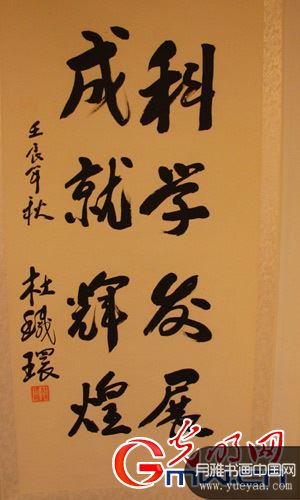 科学发展
成就辉煌
壬辰年秋
杜铁环
光明网
Gmw.cn
月雅书画中国网
www.yueyaa.com